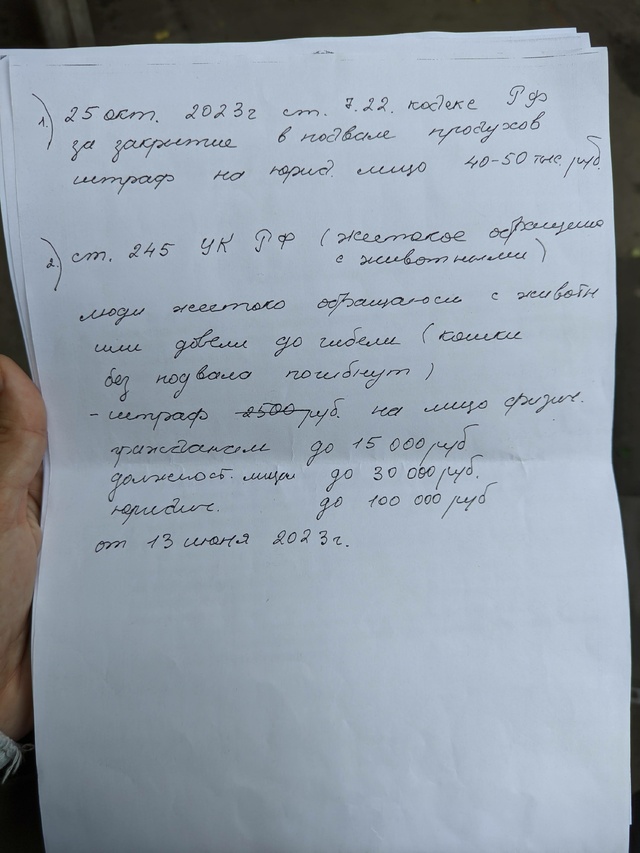 1.) 25 окт. 2023г ст. 7.22. кодекс РФ
за закрытие в подвале продухов
штраф на юрид. лицо 40-50 тыс. руб.
2.) ст. 245 УК РФ (жестокое обращение
с животными)
люди жестоко обращаются с животн
или довели до гибели (кошки
без подвала погибнут)
- штраф 2500 руб. на лицо физич.
гражданам до 15 000 руб
должност. лицам до 30 000 руб.
юридич. до 100 000 руб
от 13 июня 2023г.